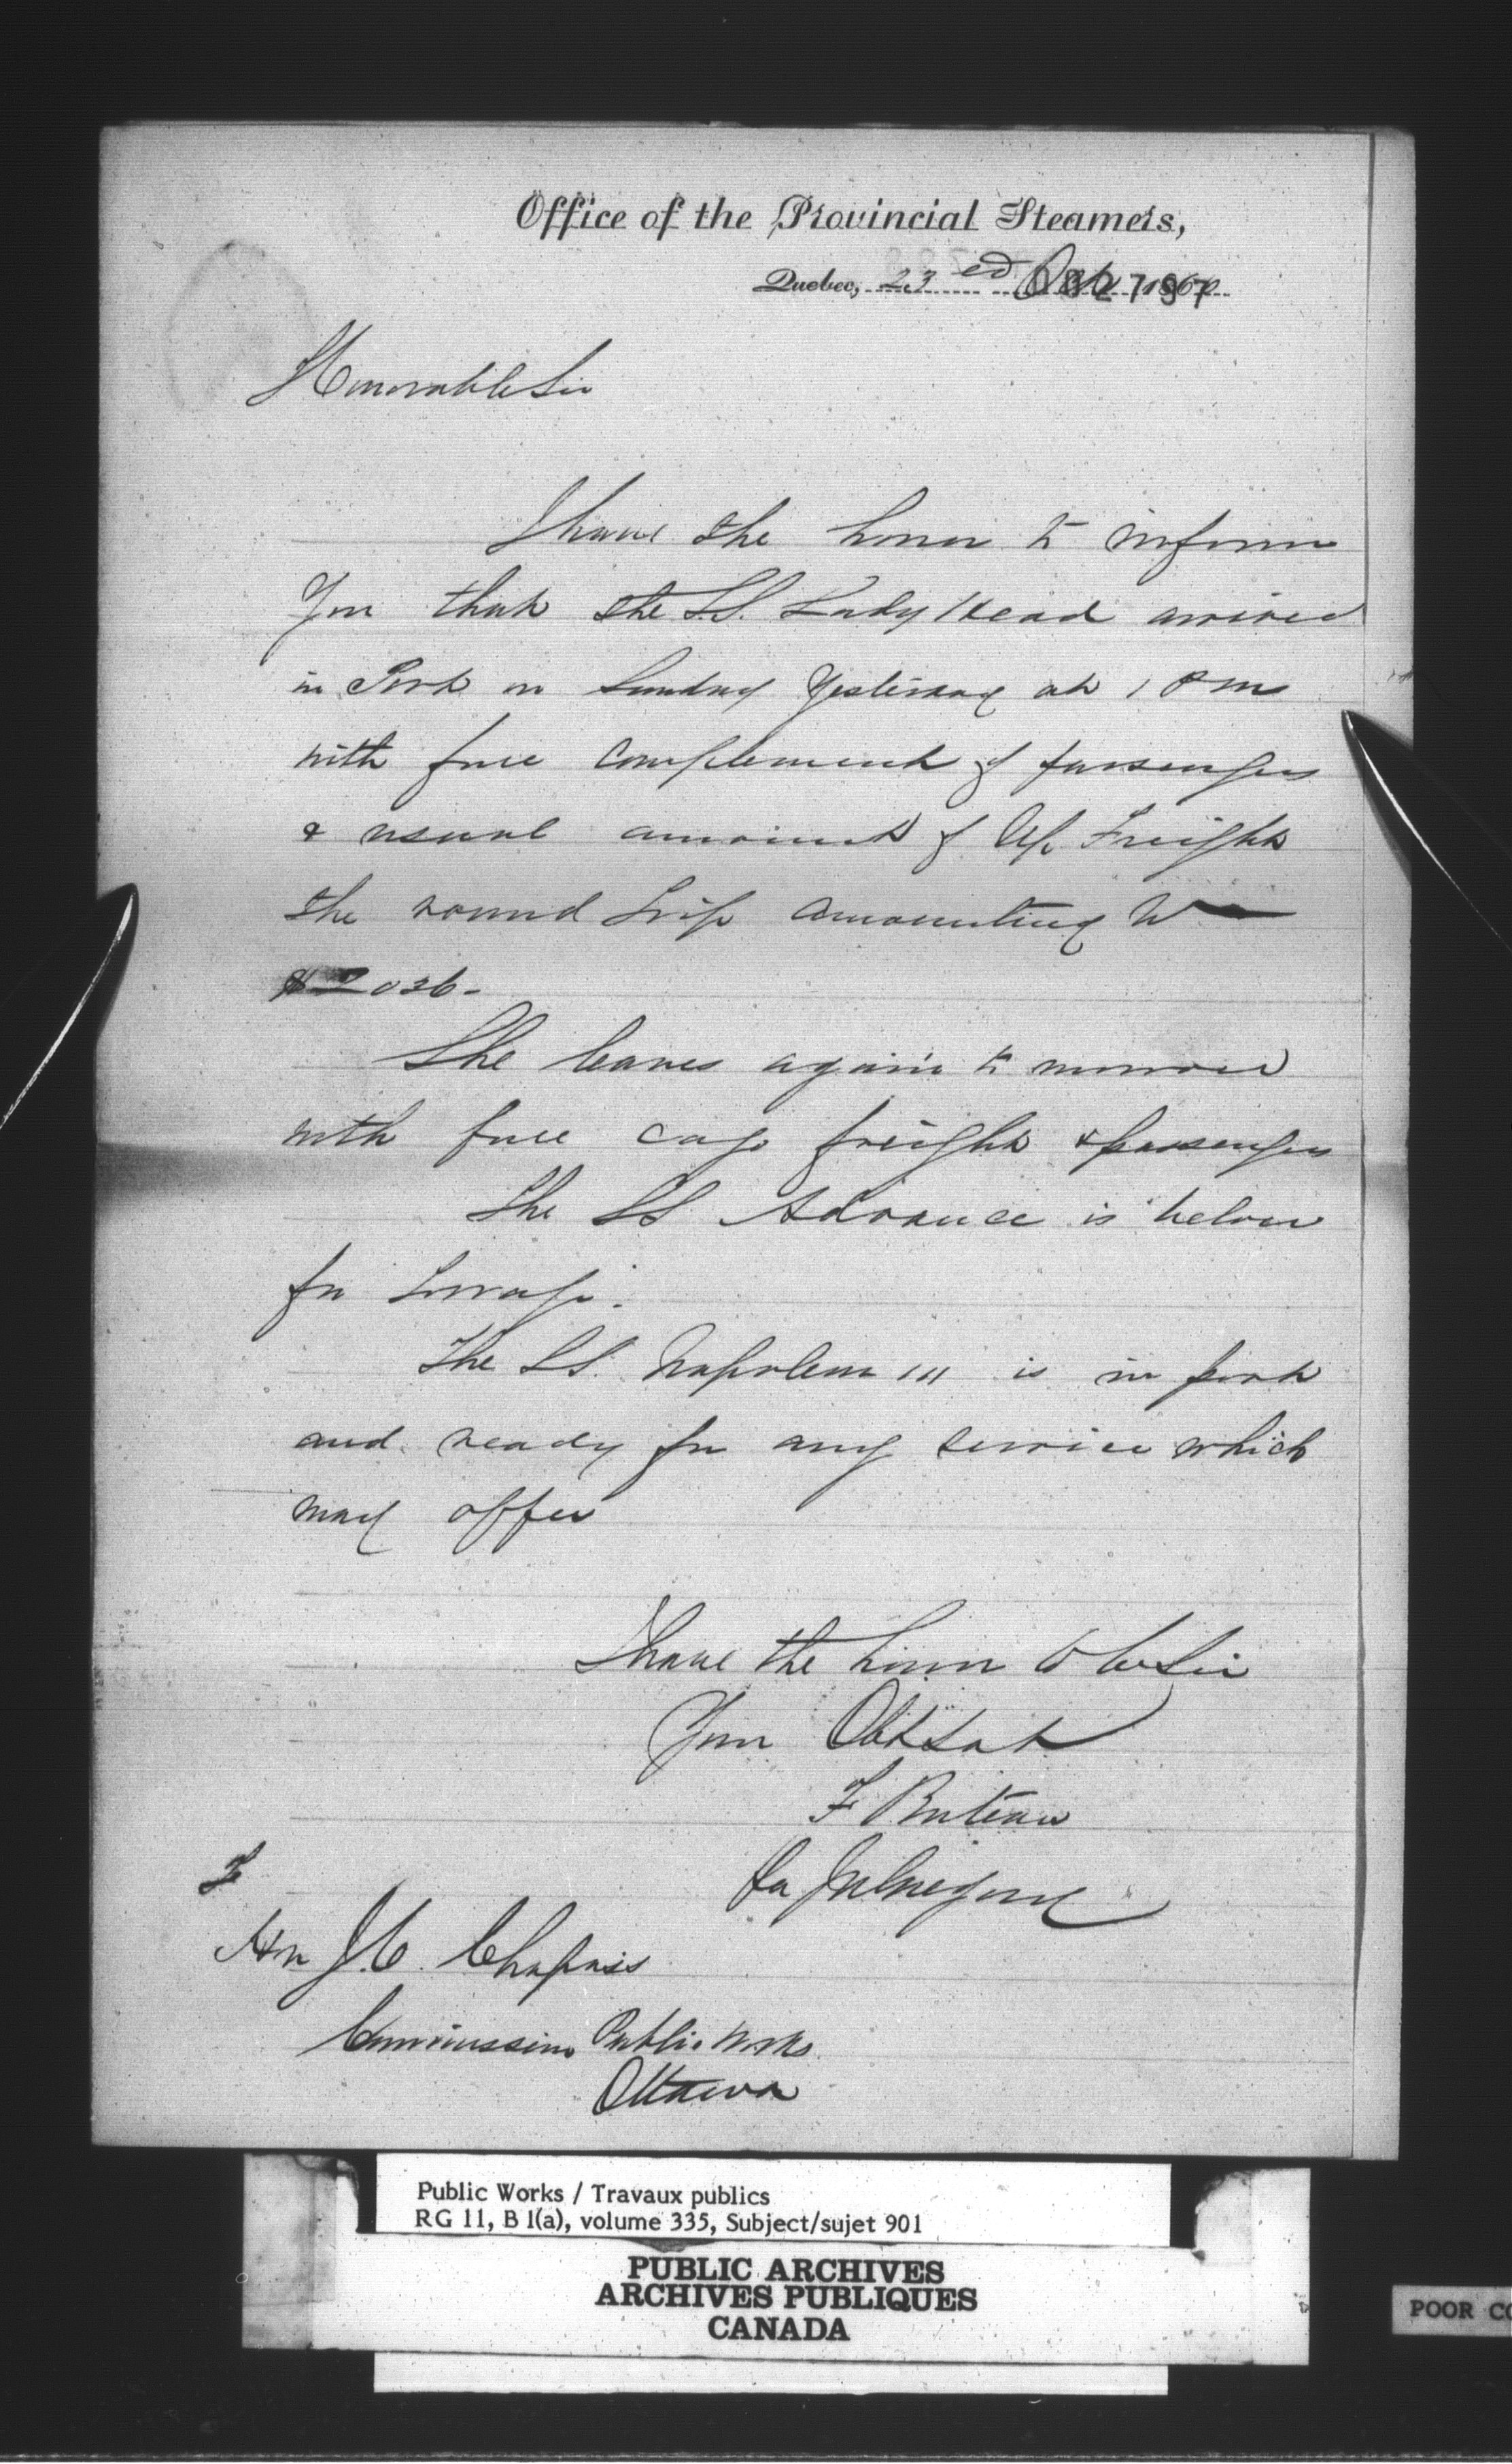 Office of the Provincial Steamers,
Quebec, 23ed
082797
Honorable Sir
I have the honor to inform
you that the S.S. Lady Head arrived
in Port on Sunday Yesterday at 1 Pm
with full complement of passengers
& usual amount of Up Freight
the round trip amounting to
$2036-
She leaves again to morrow
with full cargo freight & passengers
The SS Advance is below
for
The S.S. Napoleon III is in port
and ready for any service which
may offer
I have the honor to be Sir
Your Obt Sert
F Buteau
To
Hon J.C. Chapais
Commissioner Public Works
Ottawa
Public Works / Travaux publics
RG 11, B 1(a), volume 335, Subject/sujet 901
PUBLIC ARCHIVES
ARCHIVES PUBLIQUES
CANADA
POOR